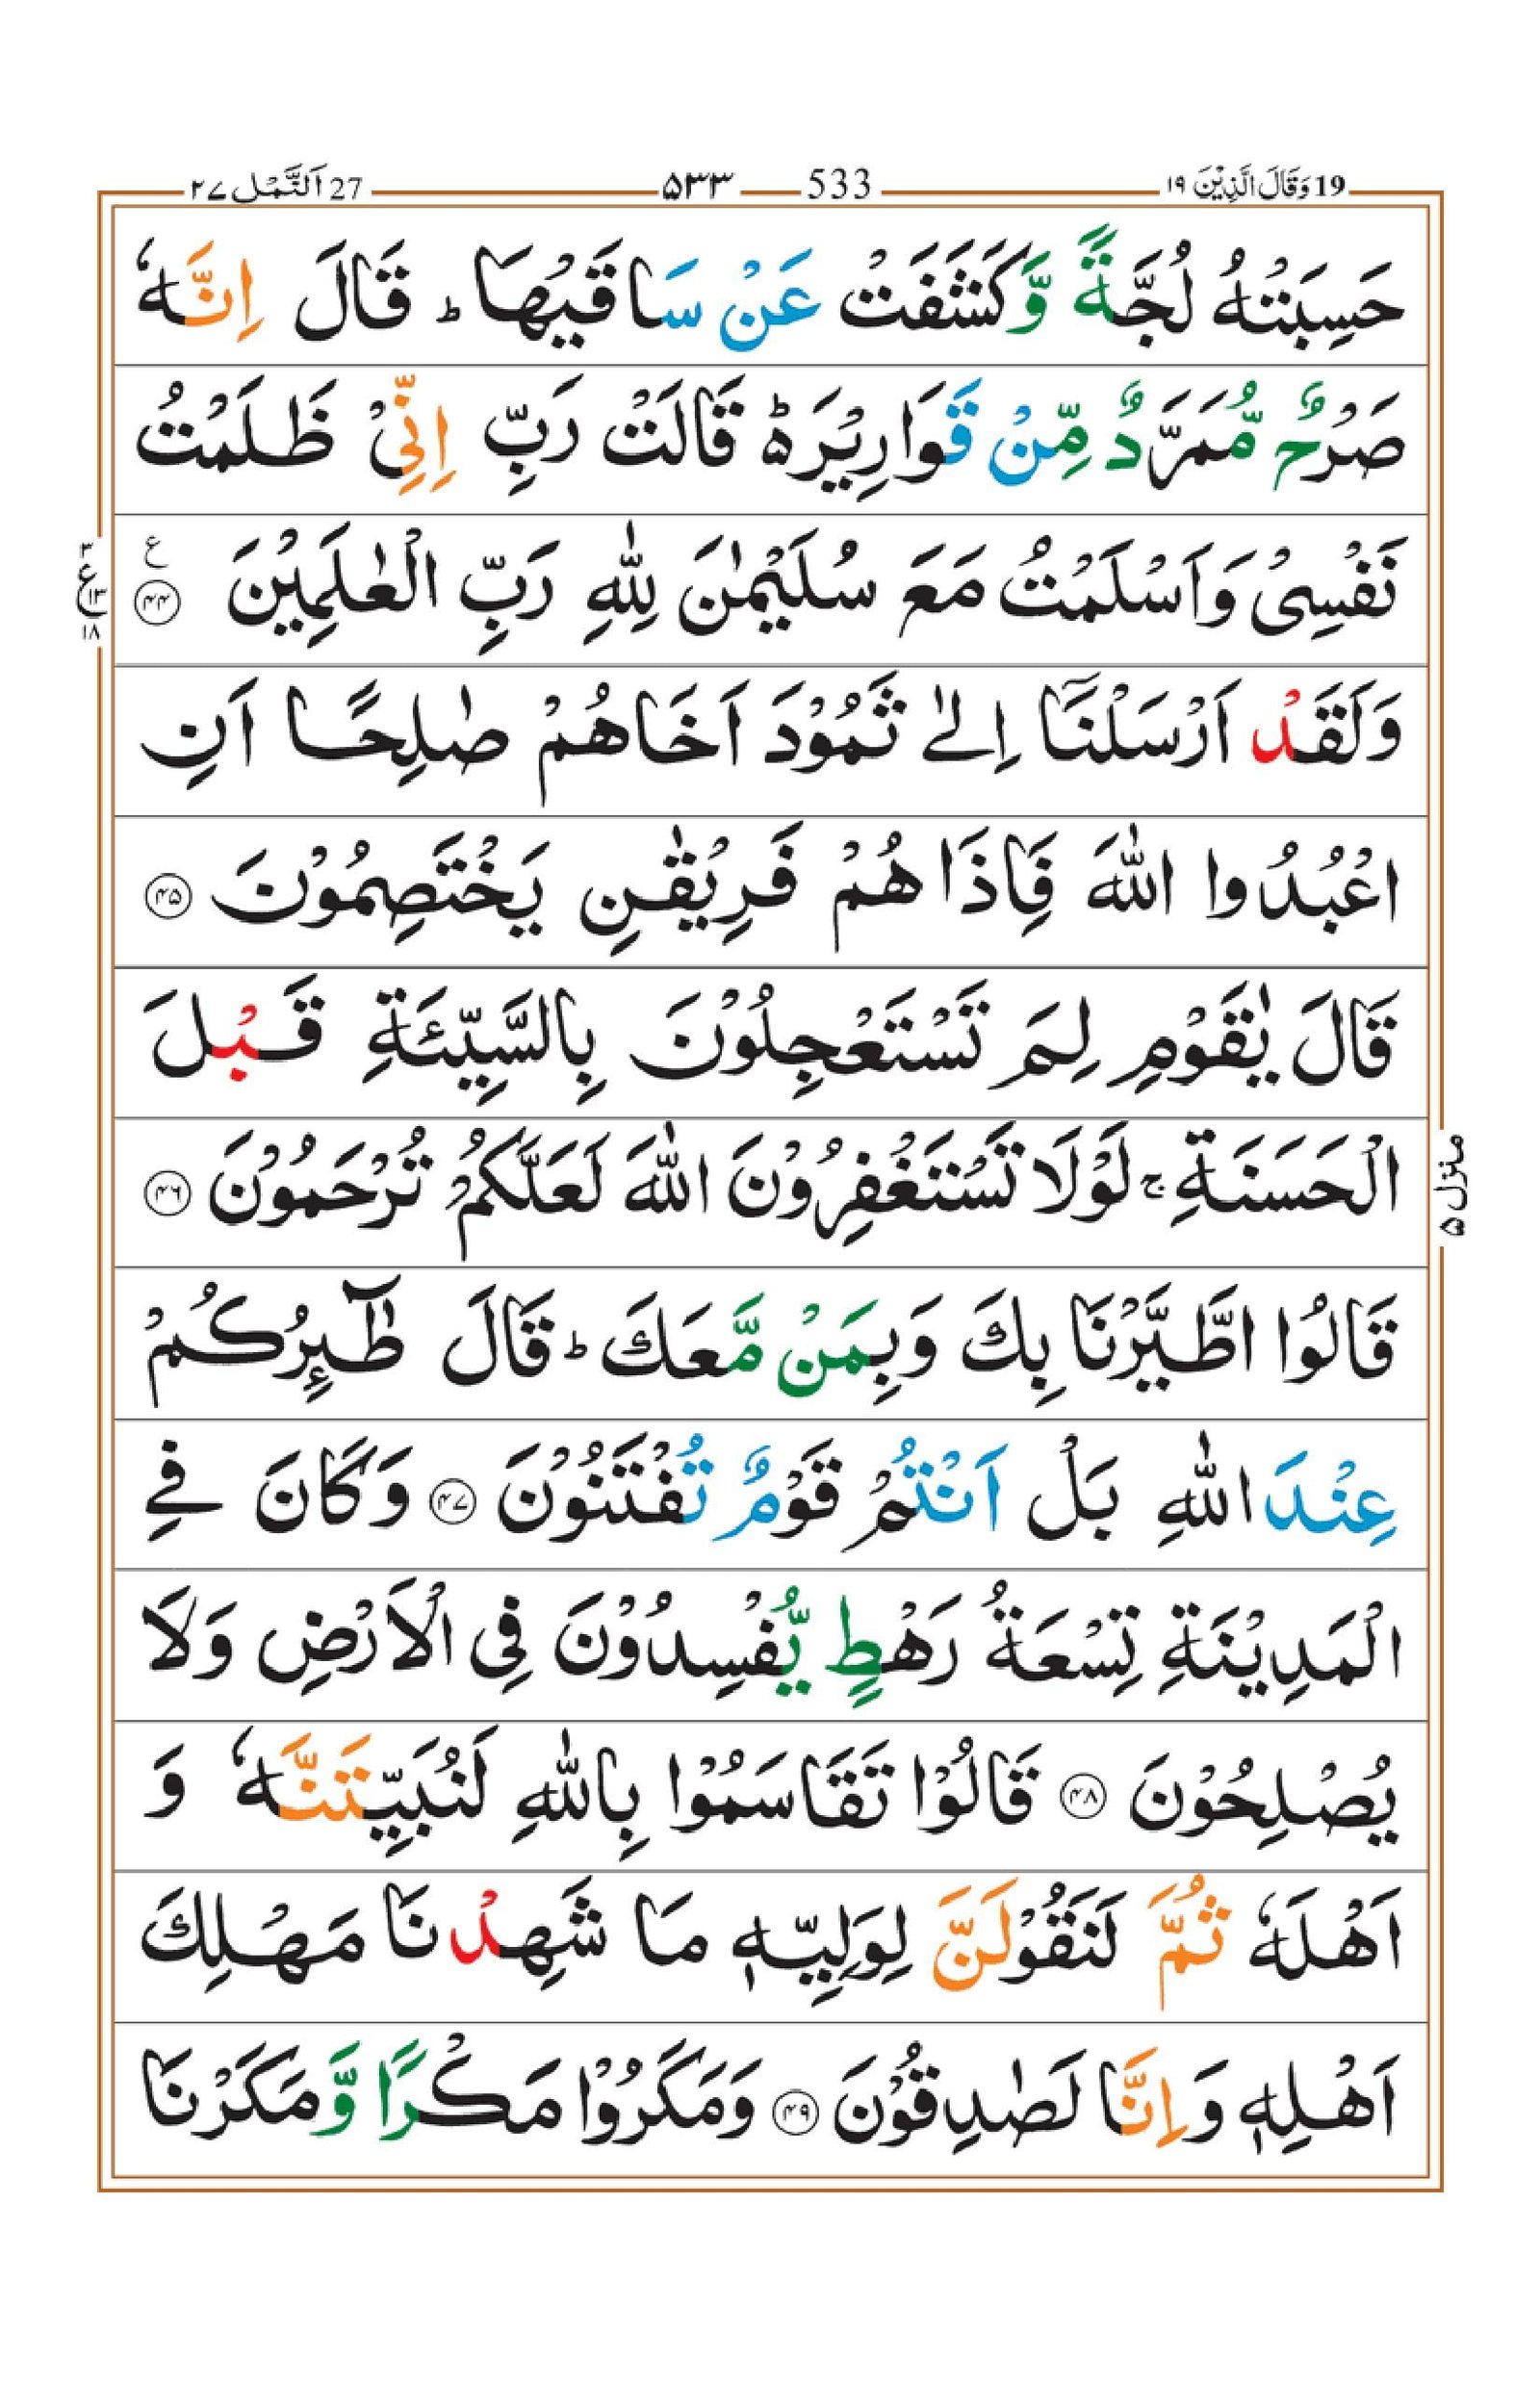 19 وَقَالَ الَّذِيْنَ ١٩ 533 ۵۳۳ 27 اَلنَّمْل ٢٧
حَسِبَتْهُ لُجَّةً وَّكَشَفَتْ عَنْ سَاقَيْهَا ؕ قَالَ اِنَّهٗ
صَرْحٌ مُّمَرَّدٌ مِّنْ قَوَارِيْرَ ؕ۬ قَالَتْ رَبِّ اِنِّىْ ظَلَمْتُ
نَفْسِىْ وَاَسْلَمْتُ مَعَ سُلَيْمٰنَ لِلّٰهِ رَبِّ الْعٰلَمِيْنَ ﴿۴۴﴾ ع
٣ ع ١٣ ١٨
وَلَقَدْ اَرْسَلْنَاۤ اِلٰى ثَمُوْدَ اَخَاهُمْ صٰلِحًا اَنِ
اعْبُدُوا اللّٰهَ فَاِذَا هُمْ فَرِيْقٰنِ يَخْتَصِمُوْنَ ﴿۴۵﴾
قَالَ يٰقَوْمِ لِمَ تَسْتَعْجِلُوْنَ بِالسَّيِّئَةِ قَبْلَ
الْحَسَنَةِ ۚ لَوْلَا تَسْتَغْفِرُوْنَ اللّٰهَ لَعَلَّكُمْ تُرْحَمُوْنَ ﴿۴۶﴾
منزل ۵
قَالُوا اطَّيَّرْنَا بِكَ وَبِمَنْ مَّعَكَ ؕ قَالَ طٰٓٮِٕرُكُمْ
عِنْدَ اللّٰهِ بَلْ اَنْتُمْ قَوْمٌ تُفْتَنُوْنَ ﴿۴۷﴾ وَكَانَ فِى
الْمَدِيْنَةِ تِسْعَةُ رَهْطٍ يُّفْسِدُوْنَ فِى الْاَرْضِ وَلَا
يُصْلِحُوْنَ ﴿۴۸﴾ قَالُوْا تَقَاسَمُوْا بِاللّٰهِ لَنُبَيِّتَنَّهٗ وَ
اَهْلَهٗ ثُمَّ لَنَقُوْلَنَّ لِوَلِيِّهٖ مَا شَهِدْنَا مَهْلِكَ
اَهْلِهٖ وَاِنَّا لَصٰدِقُوْنَ ﴿۴۹﴾ وَمَكَرُوْا مَكْرًا وَّمَكَرْنَا